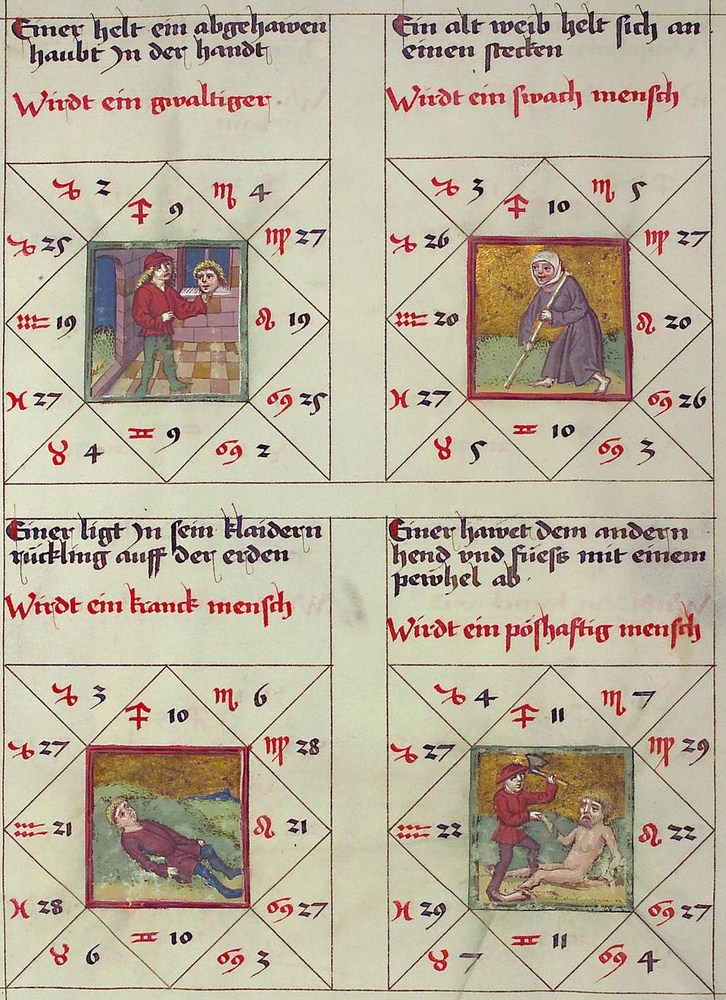 Einer helt ein abgehawen
haubt jn der handt
Wirdt ein gwaltiger
♑ 2 ♐ 9 ♏ 4
♑ 25 ♍ 27
♒ 19 ♌ 19
♓ 27 ♋ 25
♉ 4 ♊ 9 ♋ 2
Ein alt weib helt sich an
einen stecken
Wirdt ein swach mensch
♑ 3 ♐ 10 ♏ 5
♑ 26 ♍ 27
♒ 20 ♌ 20
♓ 27 ♋ 26
♉ 5 ♊ 10 ♋ 3
Einer ligt jn sein klaidern
rückling auff der erden
Wirdt ein kranck mensch
♑ 3 ♐ 10 ♏ 6
♑ 27 ♍ 28
♒ 21 ♌ 21
♓ 28 ♋ 27
♉ 6 ♊ 10 ♋ 3
Einer hawet dem andern
hend vnd fuess mit einem
peyhel ab
Wirdt ein pöshaftig mensch
♑ 4 ♐ 11 ♏ 7
♑ 27 ♍ 29
♒ 22 ♌ 22
♓ 29 ♋ 27
♉ 7 ♊ 11 ♋ 4